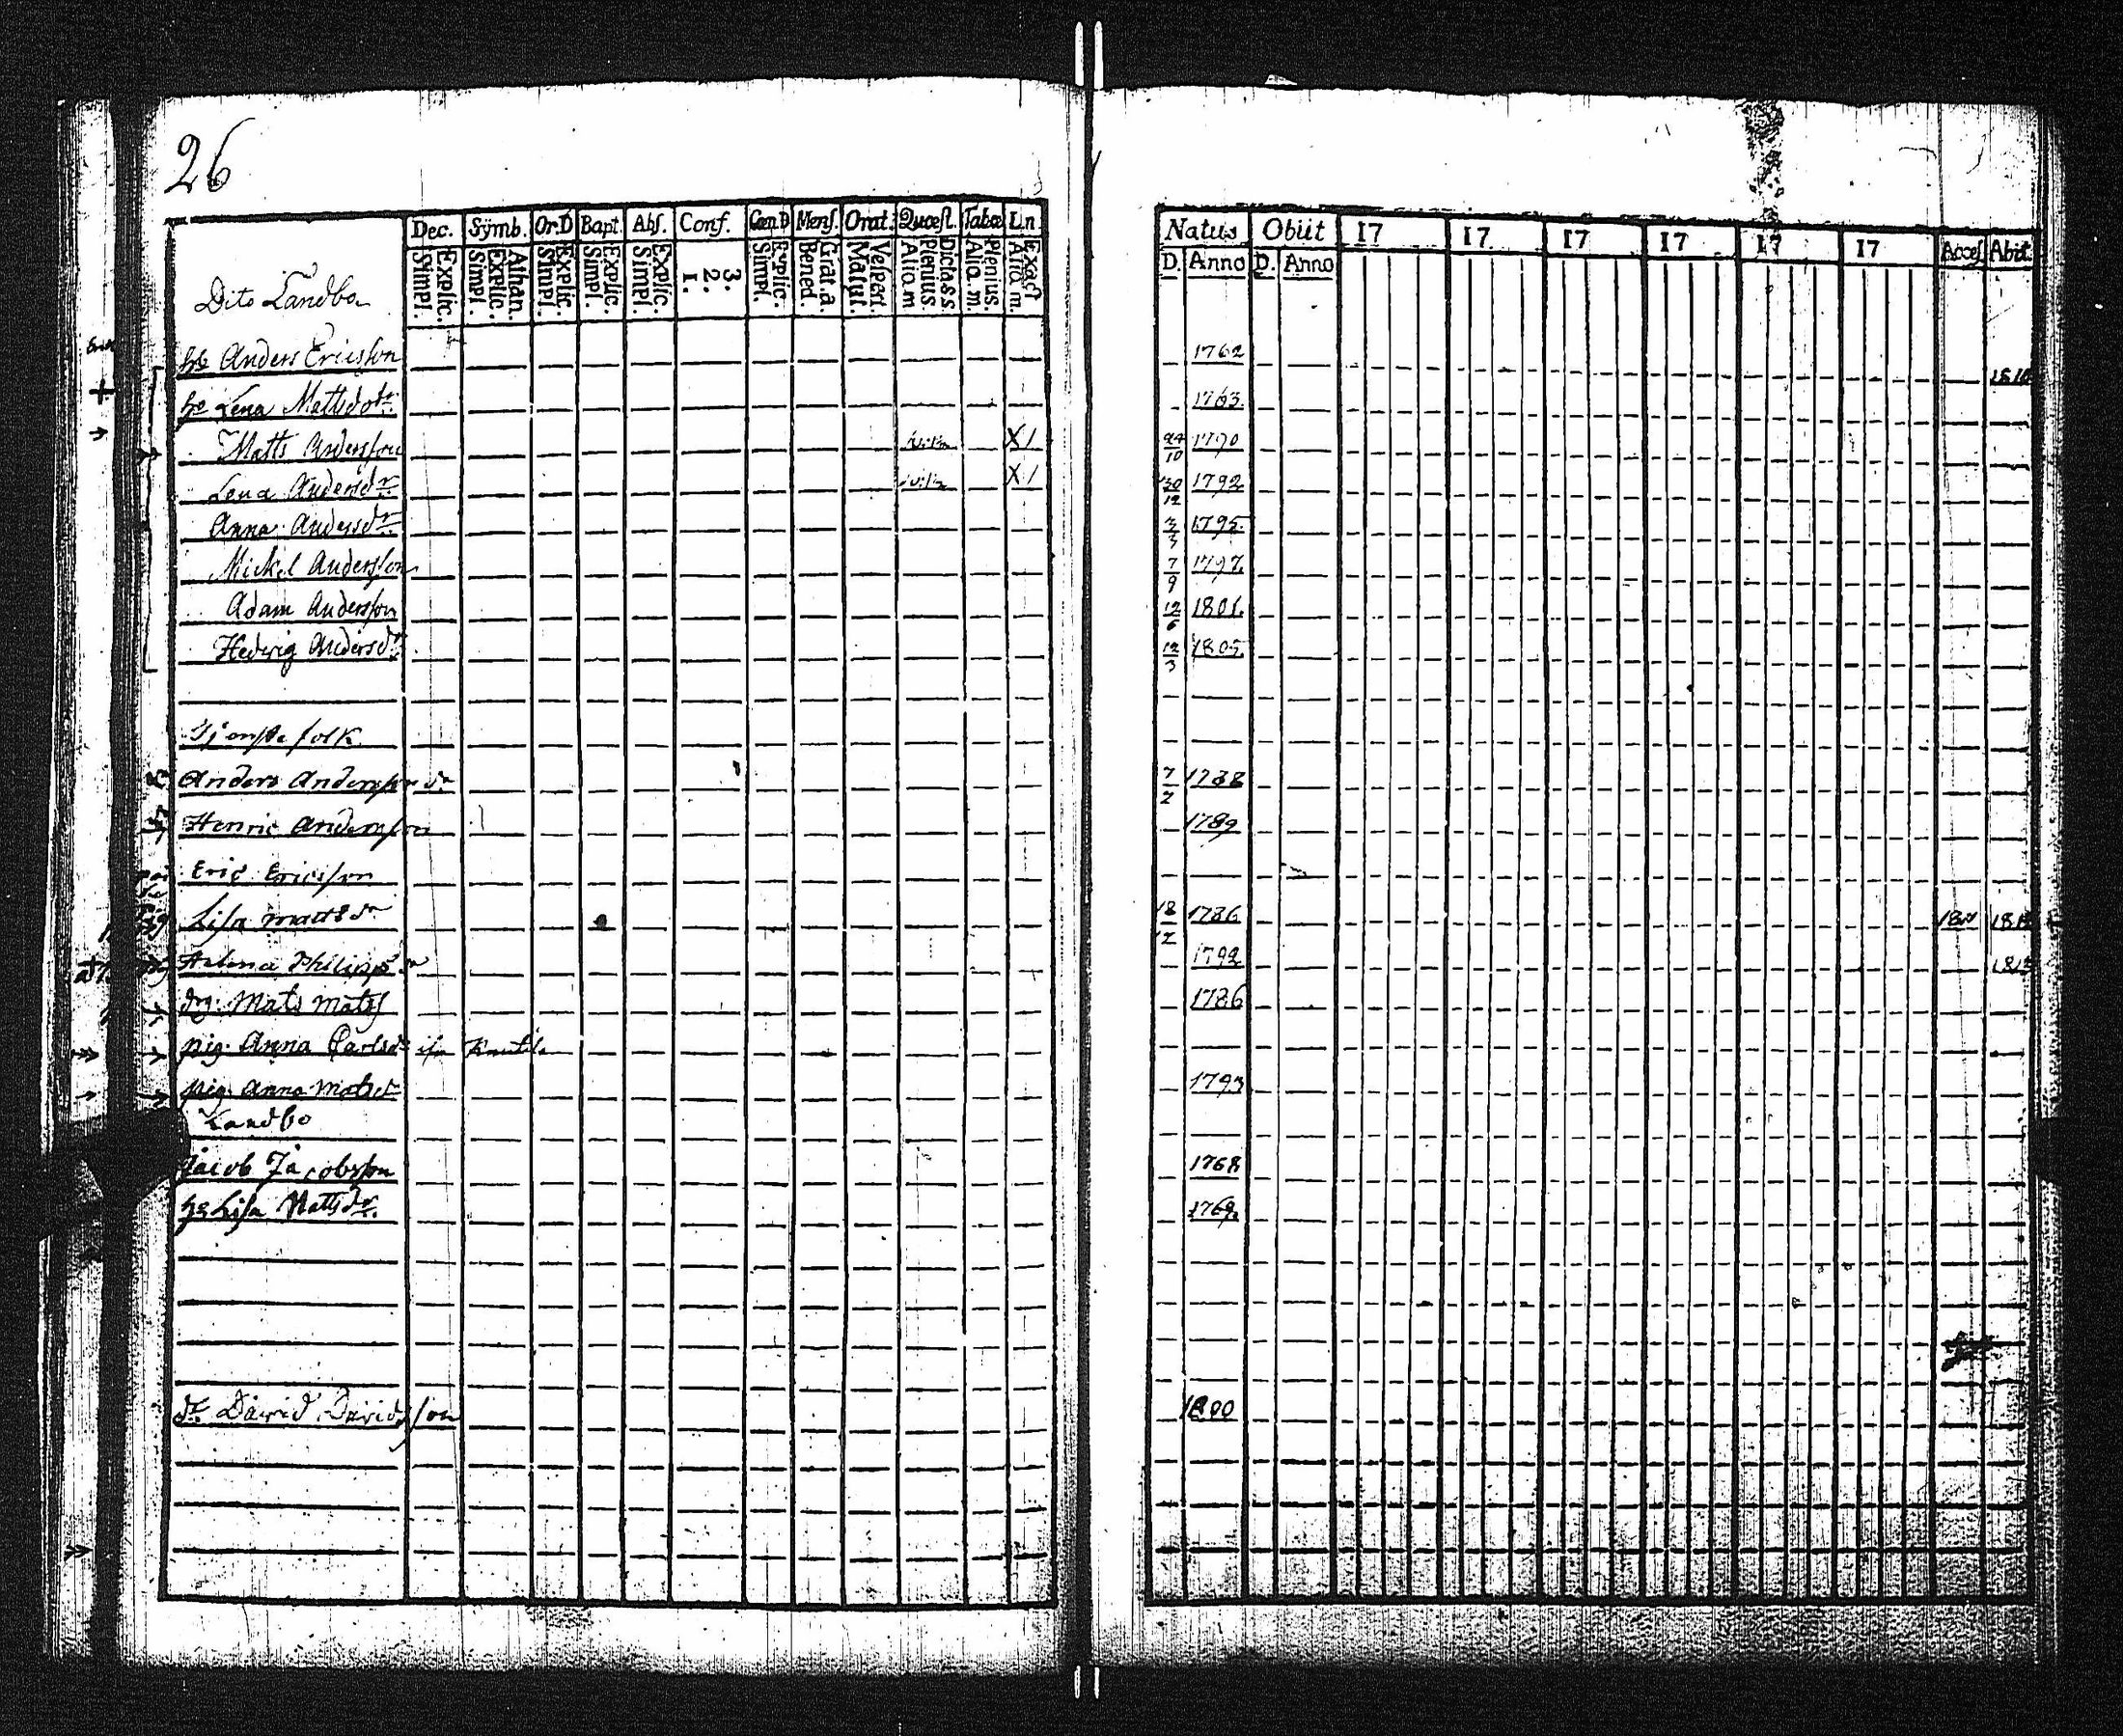 26
Dec. Symb. Or.D Bapt. Abs. Conf. Cœn.D Mens. Orat. Quæst. Tabæ Ln
Natus Obiit 17 17 17 17 17 17 Acces. Abit.
Simpl. Explic. Simpl. Explic. Athan. Simpl. Explic. Simpl. Explic. Simpl. Explic. 1. 2. 3. Simpl. Explic. Bened. Grat. a. Matut. Vespert. Alio. m Plenius. Dicta s s. Alio. m. Plenius. Alio m. Exact
D. Anno D. Anno
Dito Landbo
Anders Ericsson 1762 1810
hu Lena Mattsdotr 1763.
Matts Andersson X / 24/10 1790
Lena Andersdr X / 30/12 1792
Anna Andersdr 3/3 1795.
Mickel Andersson 7/9 1797.
Adam Andersson 12/6 1801.
Hedvig Andersdr 12/3 1805.
Tjenstefolk
Anders Andersson 7/2 1788
Henric Andersson 1789
Eric Ericsson
Lisa Mattsdr 18/12 1786
Helena Philipsdr 1792
drg. Mats Mats 1786
pig. Anna Carlsdr
pig. Anna Matsdr 1793
Landbo
Jacob Jacobsson 1768
hu Lisa Mattsdr. 1769.
dr David Davidsson 1800